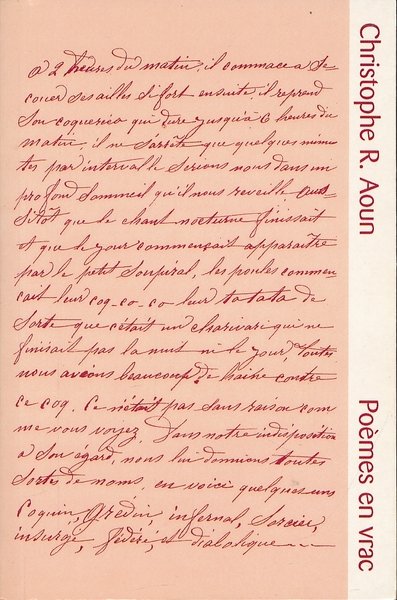 a 2 heures du matin, il commace a se-
couer ses ailles si fort ensuite il reprend
son coquerico qui dure jusqu'à 6 heures du
matin, il ne sarrête que quelques minu
tes par intervalle serions nous dans un
profond sommeil qu'il nous reveille
Sitôt que le chant nocturne finissait
et que le jour commençait apparaître
par le petit soupiral, les poules commen
cait leur coq-co-co leur tatata de
sorte que cétait un charivari qui ne
finisait pas la nuit ni le jour, toutes
nous avions beaucoup de haine contre
ce coq. Ce n'était pas sans raison com
me vous voyez, Dans notre indisposition
a son égard, nous lui donnions toutes
sortes de noms, en voici quelques uns
Coquin, Grédin, infernal, Sorcier,
insurgé, fédéré, et diabolique
Christophe R. Aoun
Poèmes en vrac